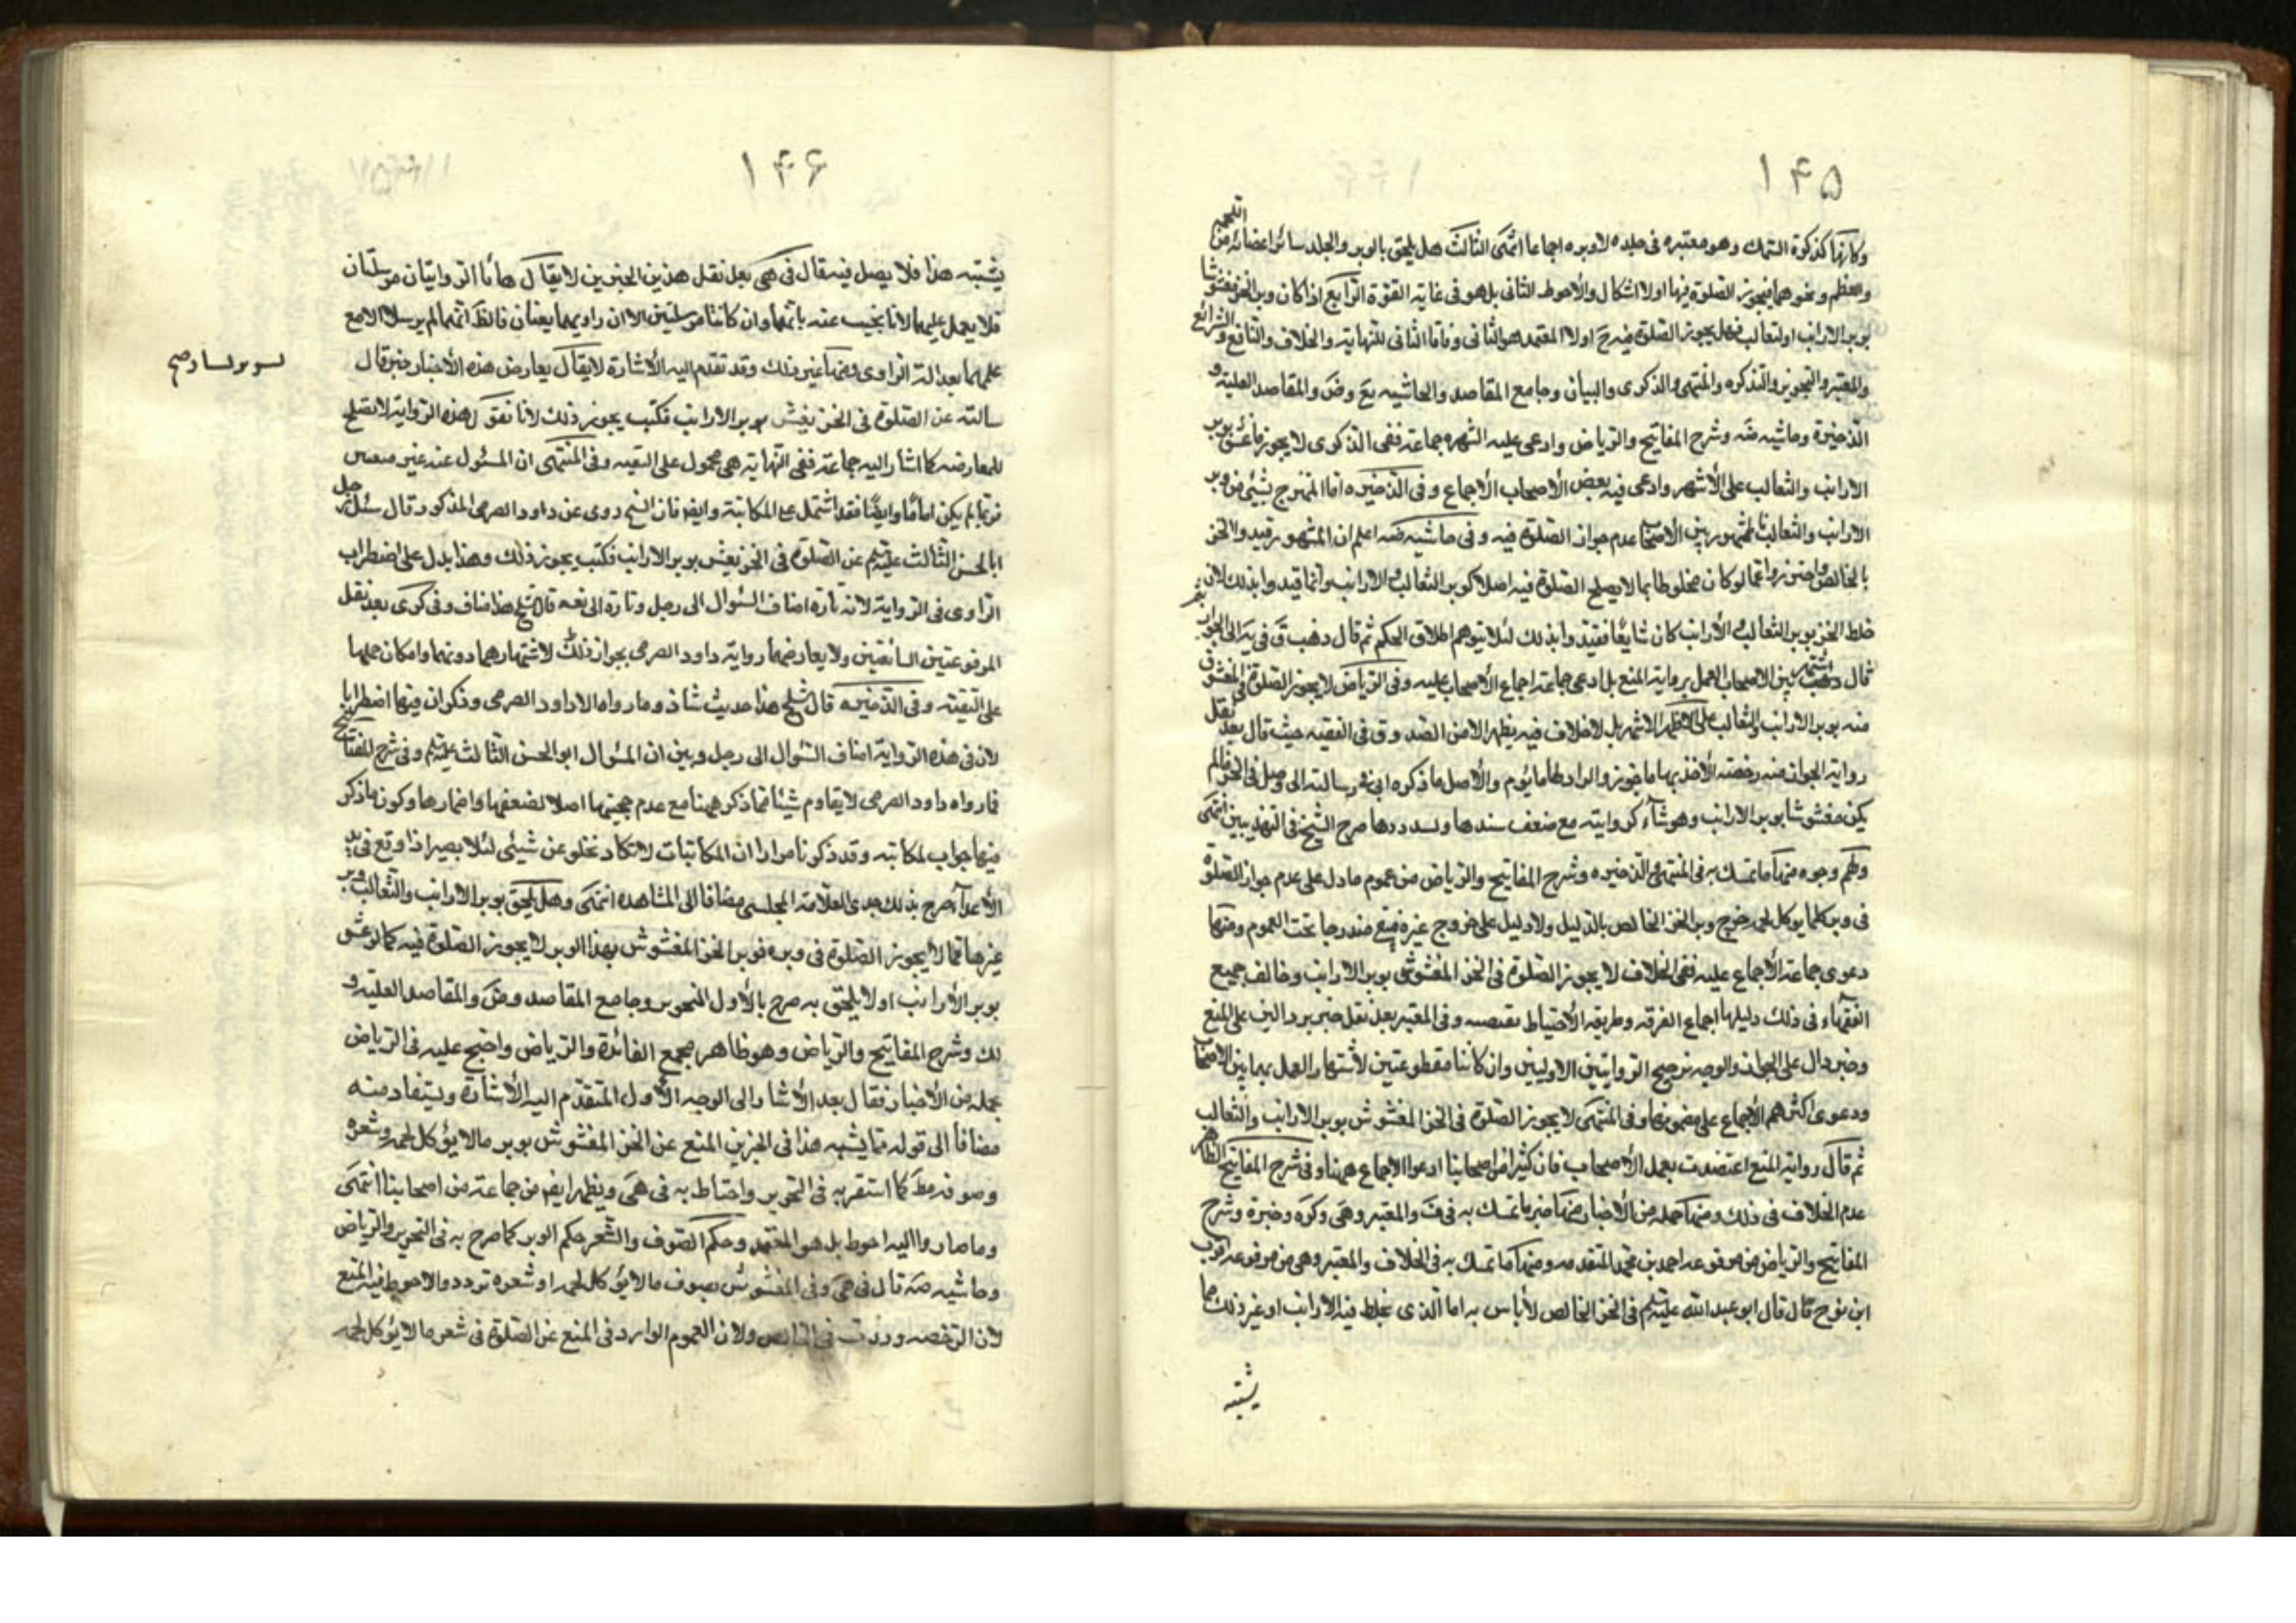 ١۴۵
وكانها كذكوة السمك وهو معتبره فى جلده لا وبره اجماعا انتهى الثالث هل يلحق بالوبر والجلد سائر اعضائه من اللحم
والعظم ونحوهما فيجوز الصلوة فيها او لا اشكال والاحوط الثانى بل هو فى غاية القوة الرابع اذا كان وبر الخز مغشوشا
بوبر الارانب او الثعالب فهل يجوز الصلوة فيه ح او لا المعتمد هو الثانى وفاقا للنهاية والخلاف والنافع والشرائع
والمعتبر والتحرير والتذكره والمنتهى والذكرى والبيان وجامع المقاصد والحاشيه وض والمقاصد العلية و
الذخيرة وحاشيه وشرح المفاتيح والرياض وادعى عليه الشهره جماعة ففى الذكرى لا يجوز ما غش بوبر
الارانب والثعالب على الأشهر وادعى فيه بعض الأصحاب الأجماع وفى الذخيره اما الممزوج بشئ من وبر
الارانب والثعالب فالمشهور بين الأصحاب عدم جواز الصلوة فيه وفى حاشيه اعلم ان المشهور تقيدوا الخز
بالخالص واحترزوا عما لو كان مخلوطا بما لا يصلح الصلوة فيه اصلا كوبر الثعالب والارانب وانما قيدوا بذلك لان
خلط الخز بوبر الثعالب والأرانب كان شايعا فقيد وا بذلك لئلا يتوهم اطلاق الحكم ثم قال وذهب ق فى يه الى الجواز
قال اشتهر بين الاصحاب العمل برواية المنع بل ادعى جماعة اجماع الأصحاب عليه وفى الرياض لا يجوز الصلوة فى المغشوش
منه بوبر الارانب والثعالب على الاظهر الاشهر بل لا خلاف فيه يظهر الا من الصدوق فى الفقيه حيث قال بعد نقل
رواية الجواز هذه رخصة الأخذ بها ماجور والراد لها ماثوم والأصل ما ذكره ابى فى رسالته الى وصل فى الخز ما لم
يكن مغشوشا بوبر الارانب وهو شاذ كروايته مع ضعف سندها صرح الشيخ فى التهذيبين انتهى
ولهم وجوه منها ما تمسك به فى المنتهى والذخيره وشرح المفاتيح والرياض من عموم ما دل على عدم جواز الصلوة
فى وبر كلما لا يوكل لحمه خرج وبر الخز الخالص بالدليل ولا دليل على خروج غيره فيبقى مندرجا تحت العموم ومنها
دعوى جماعة الأجماع عليه ففى الخلاف لا يجوز الصلوة فى الخز المغشوش بوبر الارانب وخالف جميع
الفقهاء فى ذلك دليلها اجماع الفرقه وطريقه الأحتياط تقتضيه وفى المعتبر بعد نقل خبرين دالين على المنع
وخبر دال على الجواز والوجه ترجيح الروايتين الاوليين وان كانتا مقطوعتين لأشتهار العمل بهما بين الاصحاب
ودعوى اكثرهم الأجماع على مضمونها وفى المنتهى لا يجوز الصلوة فى الخز المغشوش بوبر الارانب والثعالب
ثم قال رواية المنع اعتضدت بعمل الأصحاب فان كثيرا من اصحابنا ادعوا الاجماع ههنا وفى شرح المفاتيح الظاهر
عدم الخلاف فى ذلك ومنها جمله من الأخبار منها خبر ما تمسك به فى ف والمعتبر وهى وكره وخيرة وشرح
المفاتيح والرياض من مرفوعه احمد بن محمد المتقدمه ومنها ما تمسك به فى الخلاف والمعتبر وهى من مرفوعه ايوب
ابن نوح قال قال ابو عبد الله عليه السلم فى الخز الخالص لا بأس به اما الذى يخلط فيه الارانب او غير ذلك مما
يشتبه
١۴۶
يشتبه هذا فلا يصل فيه قال فى هى بعد نقل هذين الخبرين لا يقال هاتا الروايتان مرسلتان
فلا يعمل عليهما لانا نجيب عنه بانهما وان كانتا مرسلتين الا ان راويهما ثقتان فالظ انهما لم يرسلا الا مع
علمهما بعدالة الراوى ومنها غير ذلك وقد تقدم اليه الأشارة لا يقال يعارض هذه الأخبار خبر قال
سالته عن الصلوة فى الخز يغش بوبر الارانب فكتب يجوز ذلك لانا نقول هذه الرواية لا تصلح
للمعارضه كما اشار اليه جماعة ففى النهاية هى محمول على التقيه وفى المنتهى ان المسئول عنه غير
فربما لم يكن اماما وايضا فقد اشتمل على المكاتبة وايضا فان الشيخ روى عن داود الصرمى المذكور قال سئل رجل
ابا الحسن الثالث عليه السلم عن الصلوة فى الخز يغش بوبر الارانب فكتب يجوز ذلك وهذا يدل على اضطراب
الراوى فى الرواية لانه تارة اضاف السئوال الى رجل وتارة الى نفسه قال الشيخ هذا مناف وفى كرى بعد نقل
المرفوعتين السابقتين ولا يعارضهما رواية داود الصرمى بجواز ذلك لاشتهارهما دونها وامكان حملها
على التقيته وفى الذخيره قال الشيخ هذا حديث شاذ وما رواه الا داود الصرمى وذكر ان فيها اضطرابا
لان فى هذه الرواية اضاف السئوال الى رجل وبين ان المسؤال ابو الحسن الثالث عليه السلم وفى شرح المفتاح
فما رواه داود الصرمى لا يقاوم شيئا مما ذكر ههنا مع عدم حجيتها اصلا لضعفها واضمارها وكون ما ذكر
فيها جواب لمكاتبه وقد ذكرنا مرارا ان المكاتبات لا تكاد تخلو عن شيئى لئلا يصير اذا وقع فى يد
الأعداء صرح بذلك جدى العلامة المجلسى مضافا الى المشاهده انتهى وهل يلحق بوبر الارانب والثعالب وبر
غيرها مما لا يجوز الصلوة فى وبره فوبر الخز المغشوش بهذا الوبر لا يجوز الصلوة فيه كما لو غش
بوبر الأرانب او لا يلحق به صرح بالأول التحرير وجامع المقاصد وض والمقاصد العليه و
لك وشرح المفاتيح والرياض وهو ظاهر مجمع الفائدة والرياض واحتج عليه فى الرياض
بجملة من الأخبار فقال بعد الأشارة الى الوجه الأول المتقدم اليه الأشارة ويستفاد منه
مضافا الى قوله مما يشبه هذا فى الخبرين المنع عن الخز المغشوش بوبر مالا يؤكل لحمه وشعره
وصوفه مط كما استقربه فى التحرير واحتاط به فى هى ويظهر ايضا من جماعة من اصحابنا انتهى
وما صاروا اليه احوط بل هو المعتمد وحكم الصوف والشعر حكم الوبر كما صرح به فى التحرير والرياض
وحاشيه قال فى هى وفى المغشوش بصوف مالا يؤكل لحمه او شعره تردد والاحوط فيه المنع
لان الرخصه وردت فى الخالص ولان العموم الوارد فى المنع عن الصلوة فى شعر ما لا يؤكل لحمه